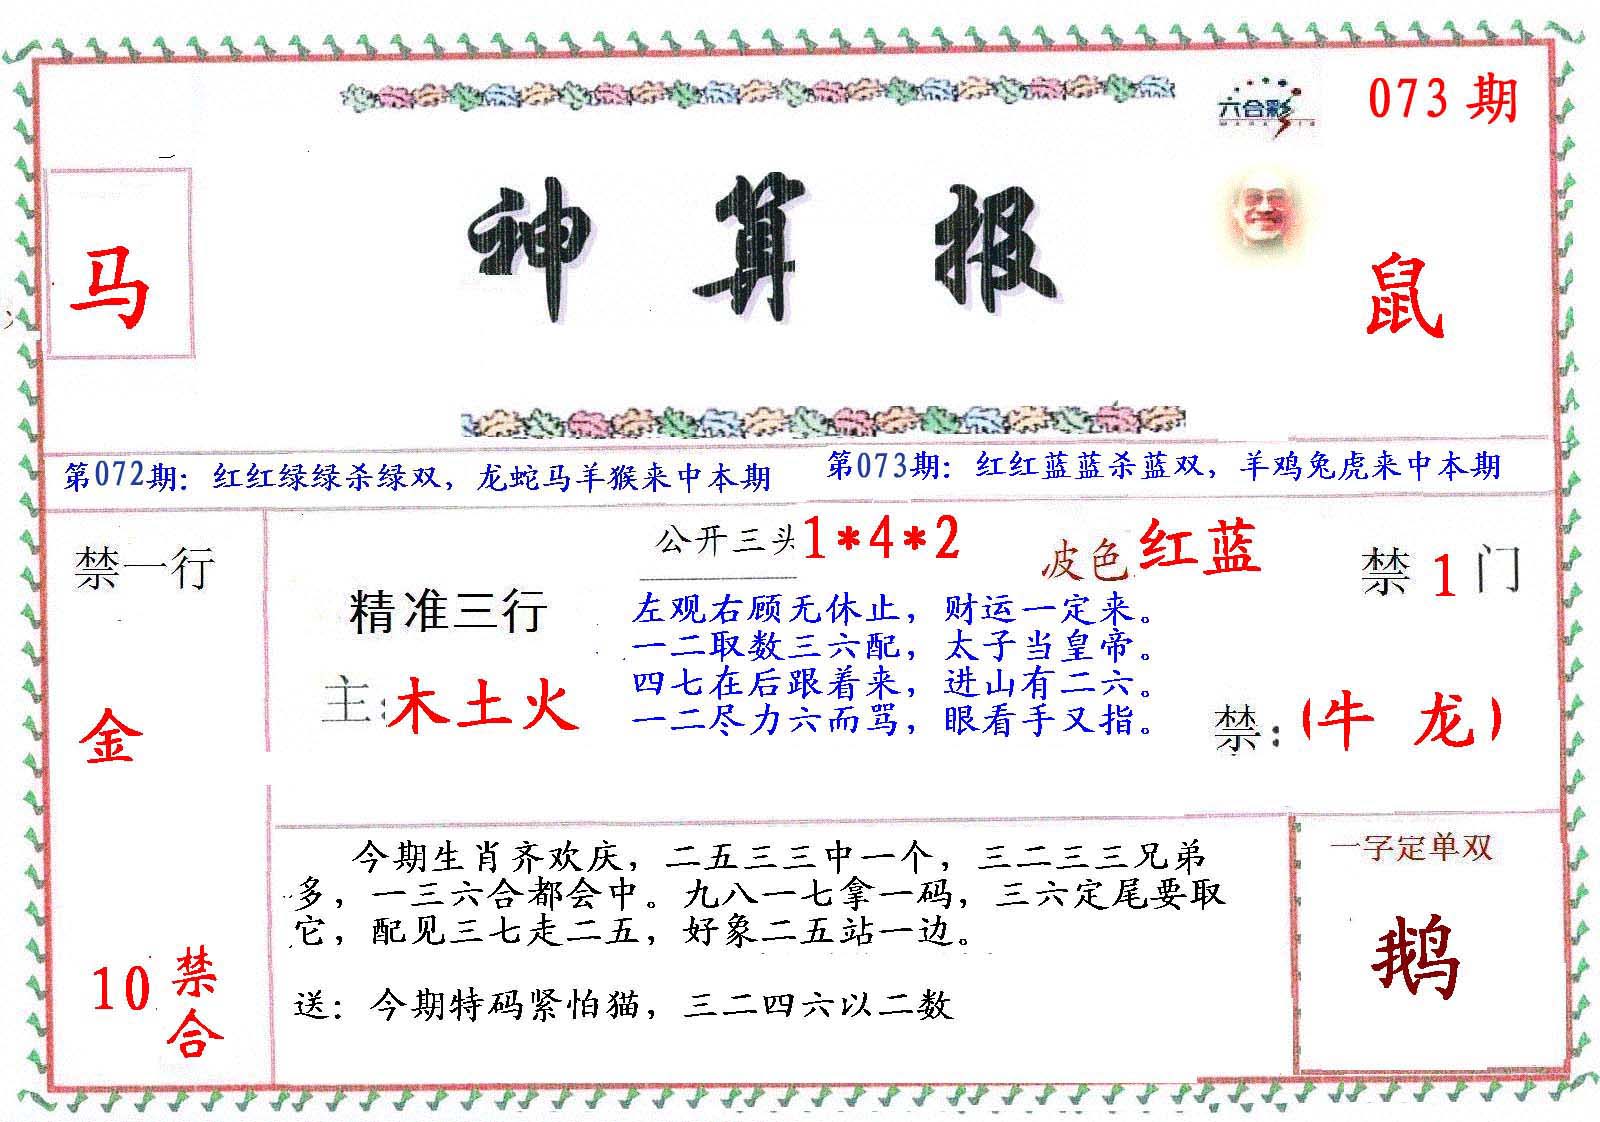 六合彩
073 期
神 算 报
马
鼠
第072期：红红绿绿杀绿双，龙蛇马羊猴来中本期
第073期：红红蓝蓝杀蓝双，羊鸡兔虎来中本期
禁一行
金
10 禁合
精准三行
主：木土火
公开三头 1*4*2
波色 红蓝
禁 1 门
左观右顾无休止，财运一定来。
一二取数三六配，太子当皇帝。
四七在后跟着来，进山有二六。
一二尽力六而骂，眼看手又指。
禁：(牛 龙)
今期生肖齐欢庆，二五三三中一个，三二三三兄弟
多，一三六合都会中。九八一七拿一码，三六定尾要取
它，配见三七走二五，好象二五站一边。
送：今期特码紧怕猫，三二四六以二数
一字定单双
鹅